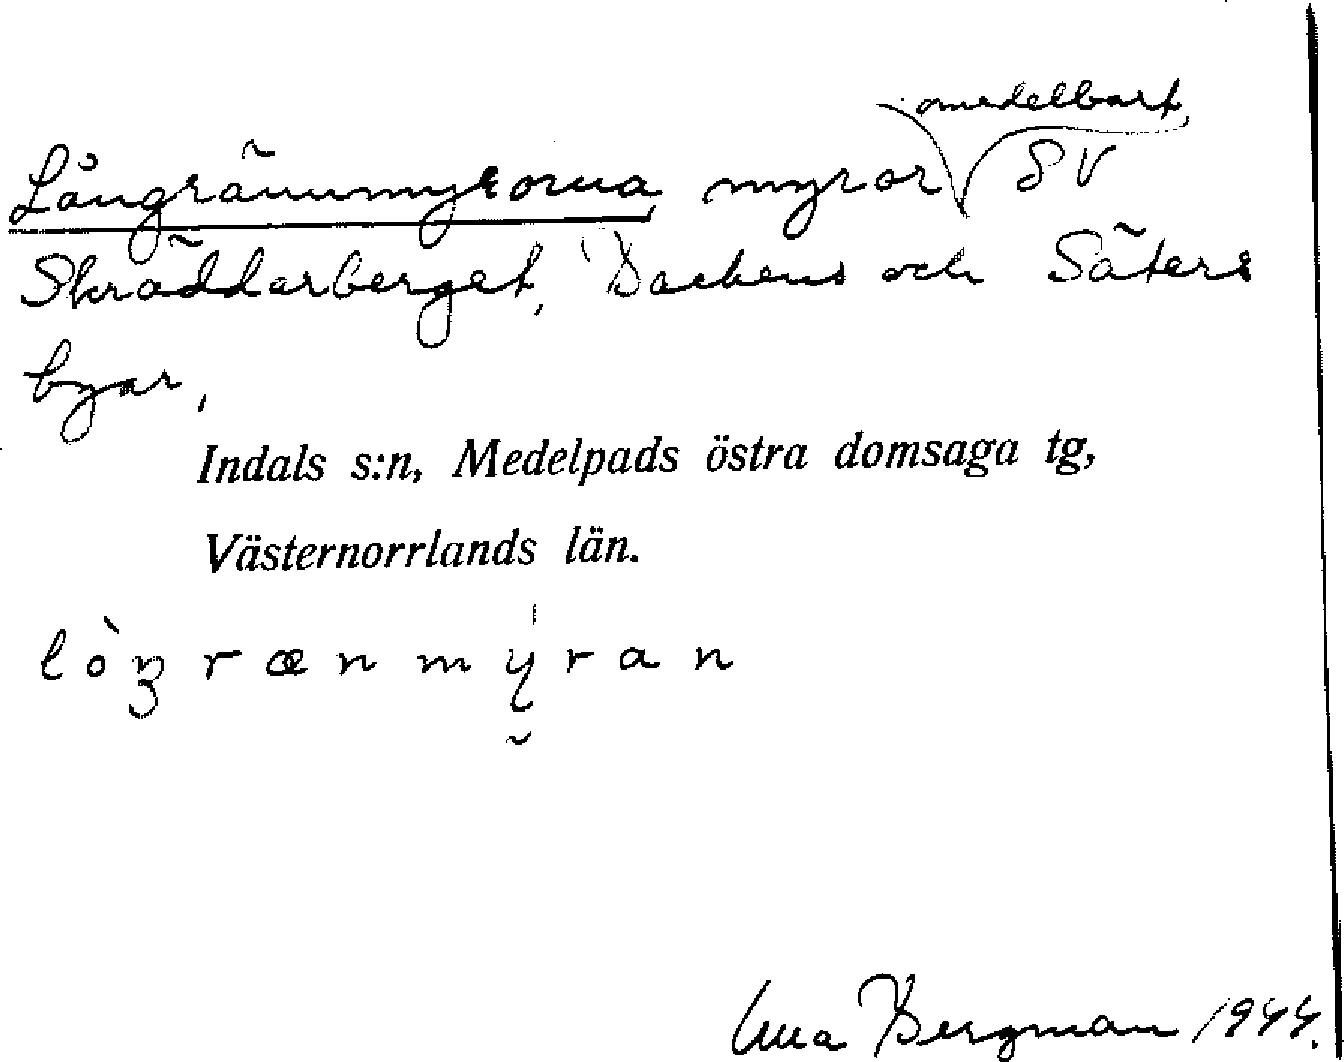 omedelbart
Långrännmyrorna, myror SV
Skräddarberget, Backens och Säters
byar,
Indals s:n, Medelpads östra domsaga tg,
Västernorrlands län.
lòŋrænmy̆ran
Bergman 1944.